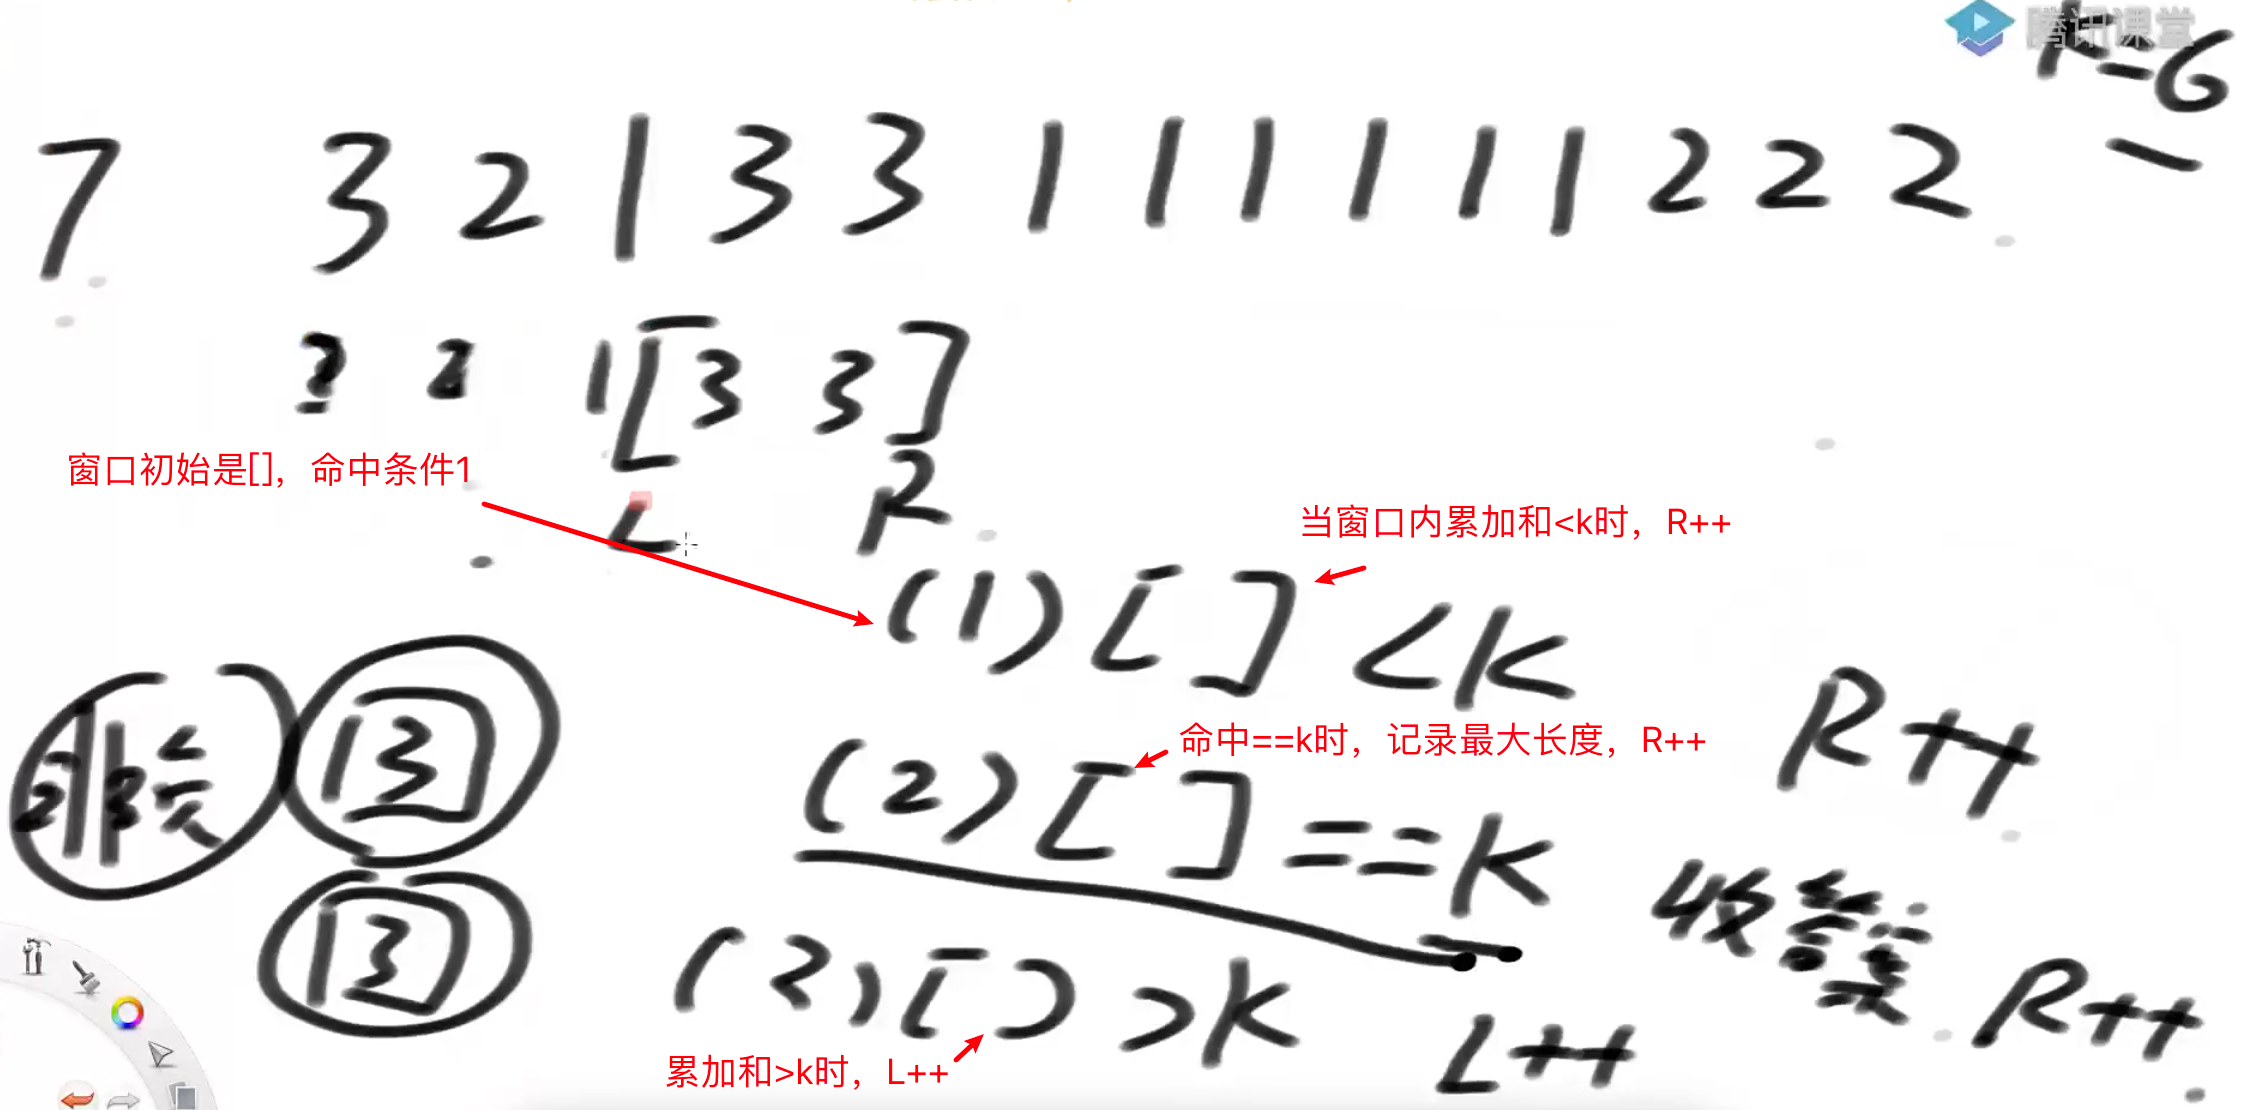 腾讯课堂
K=6
7 3 2 1 3 3 1 1 1 1 1 1 2 2 2
1 [ 3 3 ]
窗口初始是[]，命中条件1
L R
当窗口内累加和<k时，R++
(1) [ ] <K R++
命中==k时，记录最大长度，R++
(2) [ ] ==K 收 R++
(3) [ ] >K L++
累加和>k时，L++